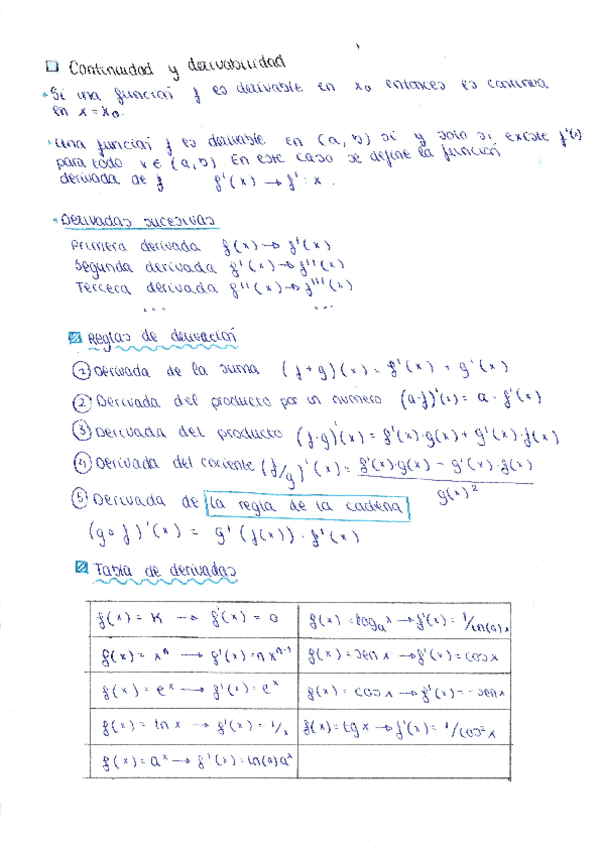 Continuidad y derivabilidad
Si una función f es derivable en x₀ entonces es continua
en x = x₀.
Una función f es derivable en (a, b) si y solo si existe f'(x)
para todo x ∈ (a, b) En este caso se define la función
derivada de f f'(x) → f' : x .
Derivadas sucesivas
Primera derivada f(x) → f'(x)
Segunda derivada f'(x) → f''(x)
Tercera derivada f''(x) → f'''(x)
... ...
Reglas de derivación
① Derivada de la suma (f + g)(x) = f'(x) + g'(x)
② Derivada del producto por un numero (a·f)'(x) = a · f'(x)
③ Derivada del producto (f·g)'(x) = f'(x)·g(x) + g'(x)·f(x)
④ Derivada del cociente (f/g)'(x) = f'(x)·g(x) - g'(x)·f(x)
g(x)²
⑤ Derivada de la regla de la cadena
(g∘f)'(x) = g'(f(x))·f'(x)
Tabla de derivadas
f(x) = K → f'(x) = 0
f(x) = logₐx → f'(x) = 1/ln(a)x
f(x) = xⁿ → f'(x) = nxⁿ⁻¹
f(x) = sen x → f'(x) = cos x
f(x) = eˣ → f'(x) = eˣ
f(x) = cos x → f'(x) = -sen x
f(x) = ln x → f'(x) = 1/x
f(x) = tg x → f'(x) = 1/cos²x
f(x) = aˣ → f'(x) = ln(a)aˣ